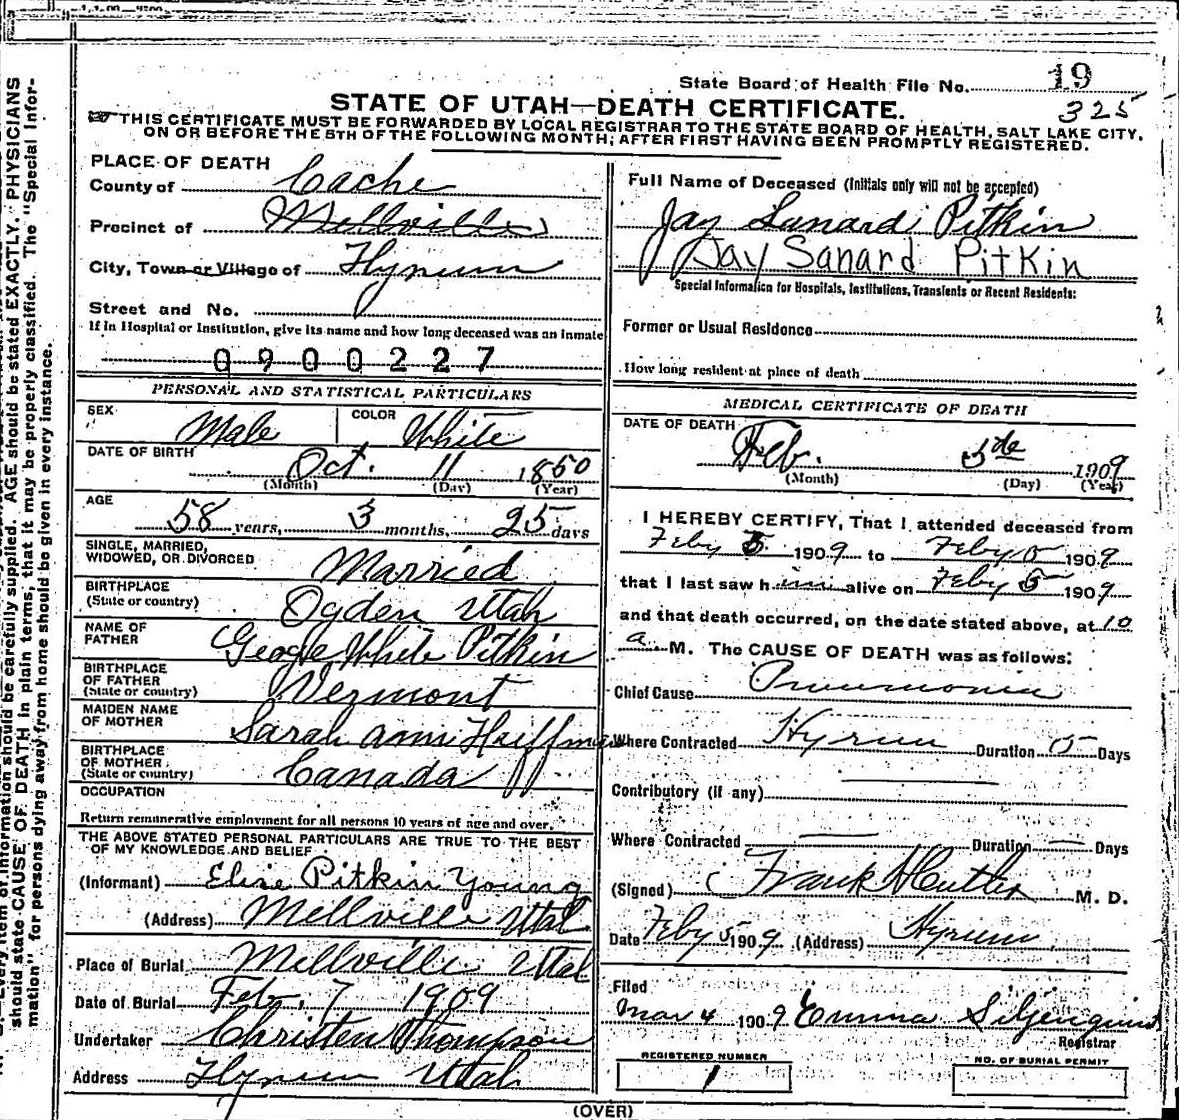 State Board of Health File No. 19
325
STATE OF UTAH—DEATH CERTIFICATE.
THIS CERTIFICATE MUST BE FORWARDED BY LOCAL REGISTRAR TO THE STATE BOARD OF HEALTH, SALT LAKE CITY,
ON OR BEFORE THE 5TH OF THE FOLLOWING MONTH; AFTER FIRST HAVING BEEN PROMPTLY REGISTERED.
PLACE OF DEATH
County of Cache
Precinct of Millville
City, Town or Village of Hyrum
Street and No.
If in Hospital or Institution, give its name and how long deceased was an inmate
0900227
PERSONAL AND STATISTICAL PARTICULARS
SEX Male COLOR White
DATE OF BIRTH Oct. 11 1850
(Month) (Day) (Year)
AGE 58 years, 3 months, 25 days
SINGLE, MARRIED,
WIDOWED, OR DIVORCED Married
BIRTHPLACE
(State or country) Ogden Utah
NAME OF
FATHER George White Pitkin
BIRTHPLACE
OF FATHER
(State or country) Vermont
MAIDEN NAME
OF MOTHER Sarah Ann Huffman
BIRTHPLACE
OF MOTHER
(State or country) Canada
OCCUPATION
Return remunerative employment for all persons 10 years of age and over.
THE ABOVE STATED PERSONAL PARTICULARS ARE TRUE TO THE BEST
OF MY KNOWLEDGE AND BELIEF
(Informant) Elise Pitkin Young
(Address) Millville Utah
Place of Burial Millville Utah
Date of Burial Feb. 7 1909
Undertaker Christen Thompson
Address Hyrum Utah
Full Name of Deceased (Initials only will not be accepted)
Jay Lunard Pitkin
Jay Sanard Pitkin
Special Information for Hospitals, Institutions, Transients or Recent Residents:
Former or Usual Residence
How long resident at place of death
MEDICAL CERTIFICATE OF DEATH
DATE OF DEATH Feb. 5de 1909
(Month) (Day) (Year)
I HEREBY CERTIFY, That I attended deceased from
Feby 5 1909 to Feby 5 1909
that I last saw him alive on Feby 5 1909
and that death occurred, on the date stated above, at 10
a M. The CAUSE OF DEATH was as follows:
Chief Cause Pneumonia
Where Contracted Hyrum Duration 5 Days
Contributory (if any)
Where Contracted Duration Days
(Signed) Frank H Cutler M. D.
Date Feby 5 1909 (Address) Hyrum
Filed
Mar 4 1909 Emma S Liljenquist
Registrar
REGISTERED NUMBER
1
NO. OF BURIAL PERMIT
(OVER)
Every item of information should be carefully supplied. AGE should be stated EXACTLY. PHYSICIANS
should state CAUSE OF DEATH in plain terms, that it may be properly classified. The "Special Infor-
mation" for persons dying away from home should be given in every instance.